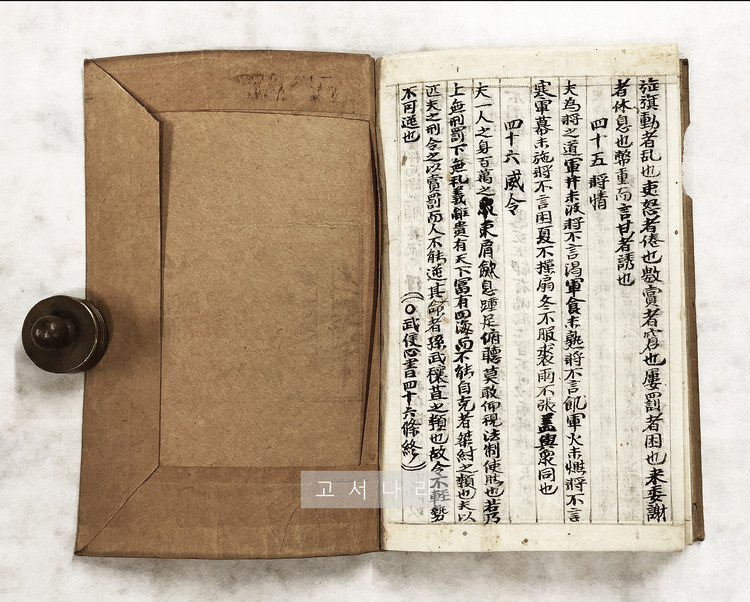 旌旗動者乱也吏怒者倦也数賞者窘也屢罰者困也来委謝
者休息也幣重而言甘者誘也
四十五 將情
夫為將之道軍井未汲將不言渴軍食未熟將不言飢軍火未燃將不言
寒軍幕未施將不言困夏不操扇冬不服裘雨不張盖與衆同也
四十六 威令
夫一人之身百萬之衆束肩歛息踵足俯聽莫敢仰視法制使然也若乃
上無刑罰下無礼義雖貴有天下富有四海而不能自克者桀紂之類也夫以
匹夫之刑令之以賞罰而人不能逆其命者孫武穰苴之類也故令不軽勢
不可逆也
(〇武侯心書四十六條終)
고서나라